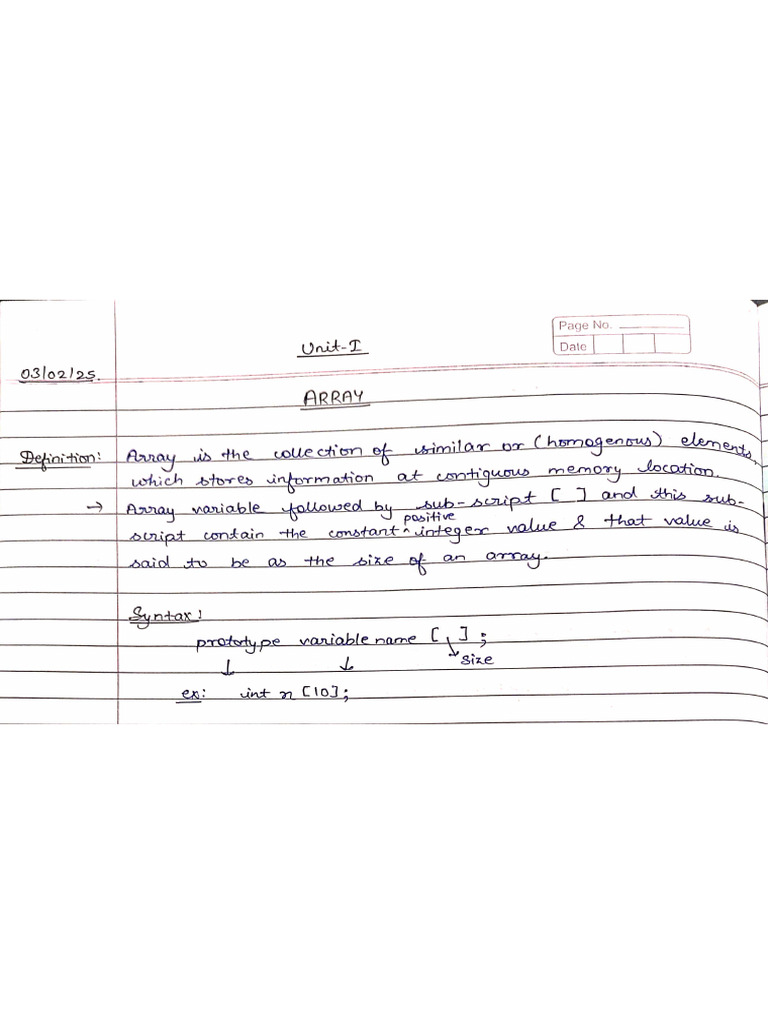 Page No.
Unit-I
Date
03/02/25.
ARRAY
Definition: Array is the collection of similar or (homogenous) elements,
which stores information at contiguous memory location.
→ Array variable followed by sub-script [ ] and this sub-
script contain the constant ^positive integer value & that value is
said to be as the size of an array.
Syntax:
prototype variable name [ ] ;
↓ ↓ size
ex: int n [10];